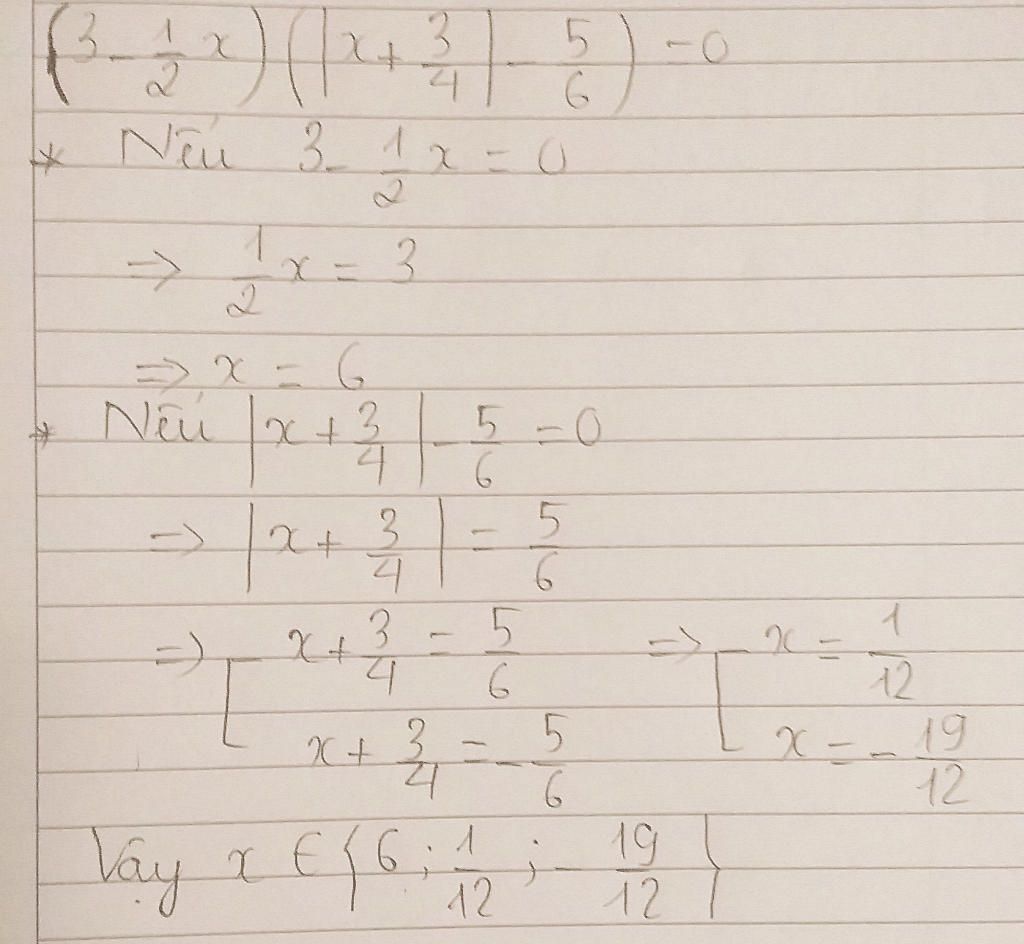 (3 - 1/2 x) (|x + 3/4| - 5/6) = 0
* Nếu 3 - 1/2 x = 0
=> 1/2 x = 3
=> x = 6
* Nếu |x + 3/4| - 5/6 = 0
=> |x + 3/4| = 5/6
=> [ x + 3/4 = 5/6 => [ x = 1/12
x + 3/4 = - 5/6 x = - 19/12
Vậy x ∈ {6 ; 1/12 ; - 19/12}